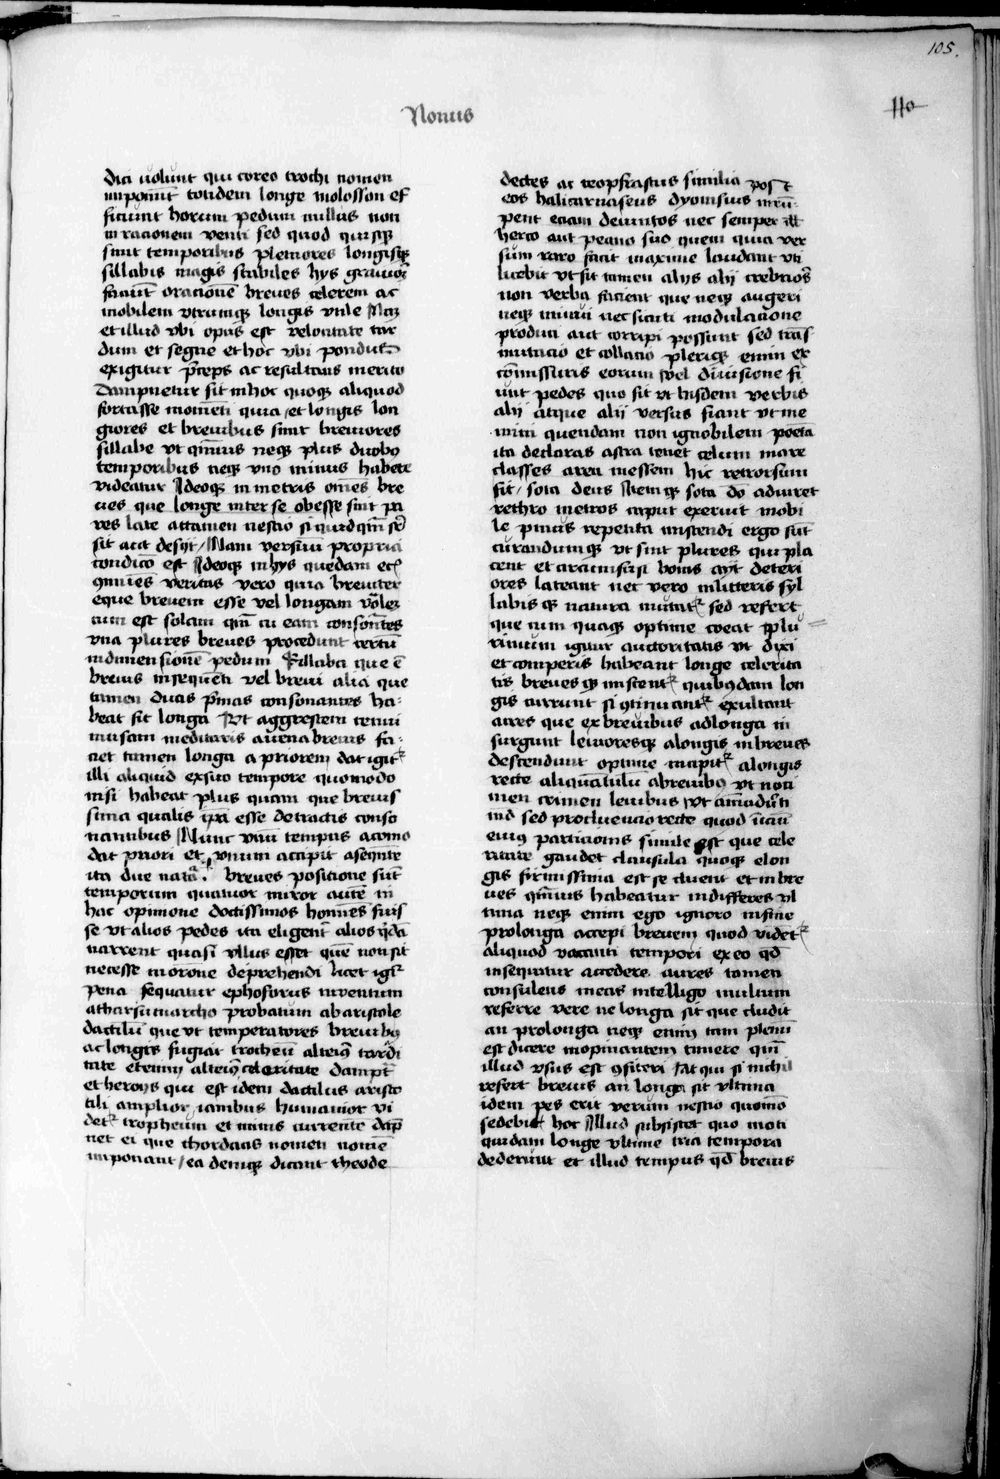 105.
Nonus
110
dici uolunt qui coreo trochi nomen
imponūt totidem longe molosson ef
ficiunt horum pedum nullus non
in racionem venit sed quod quisqꝫ
sunt temporibus pleniores longisqꝫ
sillabis magis stabiles hys grauiorē
faciūt oracionē breues celerem ac
mobilem vtrumqꝫ longis vtile Naꝫ
et illud vbi opus est velocitate tar
dum et segne et hoc vbi pondus
exigitur p̄ceps ac resultans merito
dampnetur sit in hoc quoqꝫ aliquod
fortasse momēti quia / et longis lon
giores et breuibus sunt breuiores
sillabe vt qm̄uis neqꝫ plus duobꝰ
temporibus neqꝫ vno minus habere
videatur Ideoqꝫ in metris om̄es bre
ues que longe inter se obesse sint pa
res late attamen nescio si quid
sit aut desijt / Nam versuū propria
condicō est Ideoqꝫ in hys quedam etꝭ
9mūes veritas vero quia breuiter
eque breuem esse vel longam
cum est solam qm̄ cū eam conson̄tes
vna plures breues procedunt certū
in dimensionē pedum Sillaba que ē
breuis insequēti vel breui alia que
tamen duas p̄mas consonantes ha-
beat fit longa Vt aggrestem tenui
musam meditaris auena breuis fa-
ciet tamen longa a priorem dat igitꝰ
illi aliquid ex suo tempore quomodo
nisi habeat plus quam que breuis
sima qualis ip̄a esse detractis conso
nantibus Nunc vnū tempus acomo
dat priori et vnum accipit a seqn̄te
ita due nat͛a breues positione sūt
temporum quatuor miror autē in
hac opinione doctissimos homīes fuis
se vt alios pedes ita eligent alios q̄dā
narrent quasi vllus esset quē non sit
necesse in or̄one deprehendi licet igꝰ
pena sequatur ephosorus inuentum
atharsimarcho probatum ab aristole
dactilū que vt temperatores breuibꝰ
ac longis fugiat trocheū alteiꝰ tardi
tate etenim alteiꝰ celeritate dampt̄
et heroys qui est idem dactilus aristo
tili amplior, iambus humanior vi
detꝰ tropheum et nimis currente dap̄
net ei que chordaas nomen nomē
imponant / ea demqꝫ dicant theode
dectes ac teopfrastus similia post
eos halicarnaseus dyonisius irrū-
pent etiam deuintos nec semper ill̄
heroo aut peano suo quem quia ver
sum raro facit maxime laudant vti
licebit vt sit tamen alijs alij crebrioꝰ
non verba faciant que neqꝫ augeri
neqꝫ minui nec sicuti modulacione
produci aut corripi possunt sed tr̄ns
mutacio et collacio plericqꝫ enim ex
cōmissuris eorum vel diuisione fi
unt pedes quo fit vt hisdem verbis
alij atque alij versus fiant vt me
mini quendam non ignobilem poetā
ita decloras astra tenet celum mare
classes area messem hic retrorsum
fit / sota deus Itemqꝫ sota dō adiuret
rethro metros caput exeruit mobi
le pinus repetita miscendi ergo sūt
curandumqꝫ vt sint plures qui pla
cent et circumfusi bonis ayt deteri
ores lateant nec vero in litteris syl
labisqꝫ natura mutatꝰ sed refert
que cum quaqꝫ optime coeat plu
rimum igitur auctoritatis vt dixi
et comperis habeant longe celerita
tis breuesqꝫ miscentꝰ quibꝰdam lon
gis currunt si 9tinuantꝰ exultant
acres que ex breuibus ad longa in
surgunt leuioresqꝫ a longis in breues
descendunt optime incipitꝰ a longis
recte aliquātulū a breuibꝰ vt noui
men crimen leuibus / vt
nid sed prochuencio recte quod
eiuꝰ particioins simile est que cele
ritate gaudet clausula quoqꝫ e lon
gis firmissima est se cluent et in bre
ues qm̄uis habeatur indifferēs vl
tima neqꝫ enim ego ignoro in fine
pro longa accepi breuem quod videtꝰ
aliquod vacanti tempori ex eo qd̄
insequitur accedere aures tamen
consulens meas intelligo multum
referre vere ne longa sit que cludit
an pro longa neqꝫ enim tam plenū
est dicere in opinantem timere qm̄
illud vsus est 9fiteri At qui si nichil
refert breuis an longa sit vltima
idem pes erit verum nescio quomō
sedebit hoc Illud subsistet quo moti
quidam longe vltime tria tempora
dederunt et illud tempus qd̄ breuis